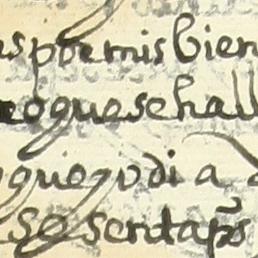 as por mis bien
o que se hall
que yo di a
se sentaps